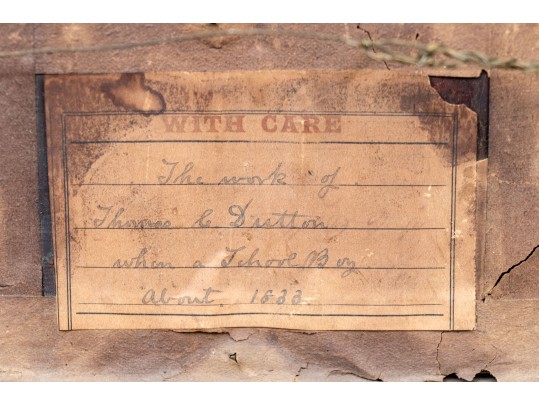 WITH CARE
The work of
Thomas C Dutton
when a School Boy
About 1833